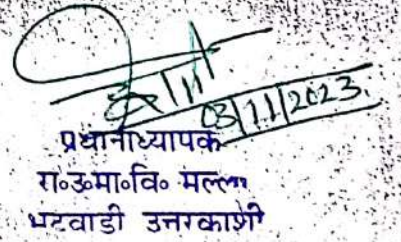 03/11/2023.
प्रधानाध्यापक
रा०उ०मा०वि० मल्ला
भटवाडी उत्तरकाशी